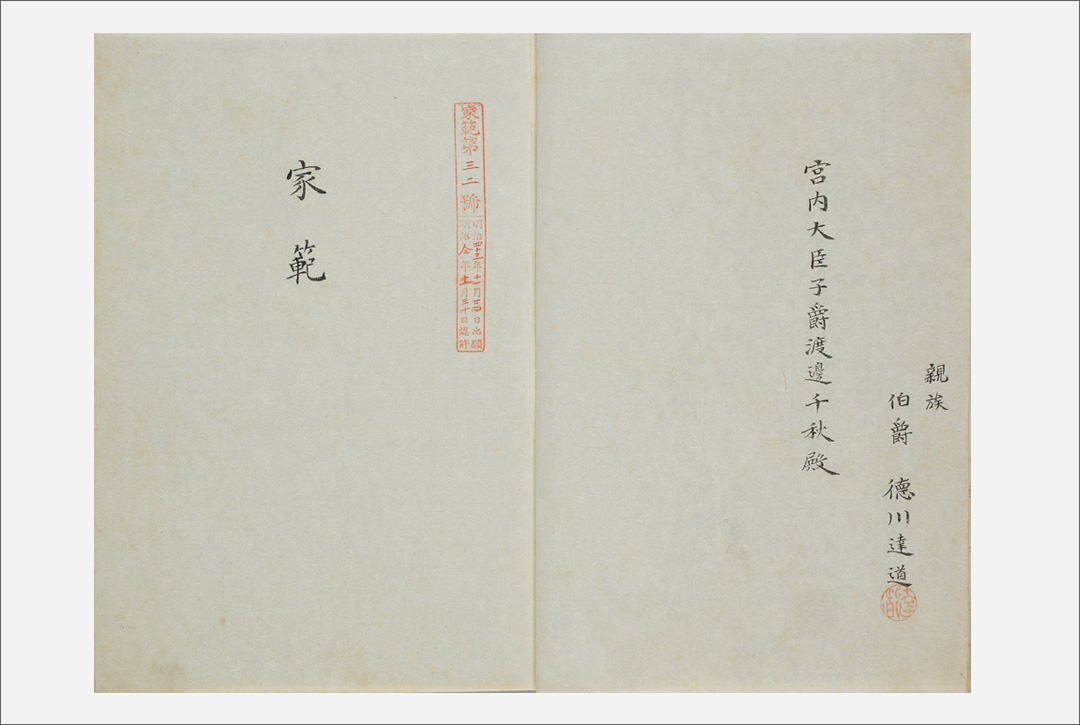 親族
伯爵 德川達道
宮内大臣子爵渡邊千秋殿
家範第三二號
明治四十三年十一月廿四日出願
明治仝年十二月三十日認許
家範